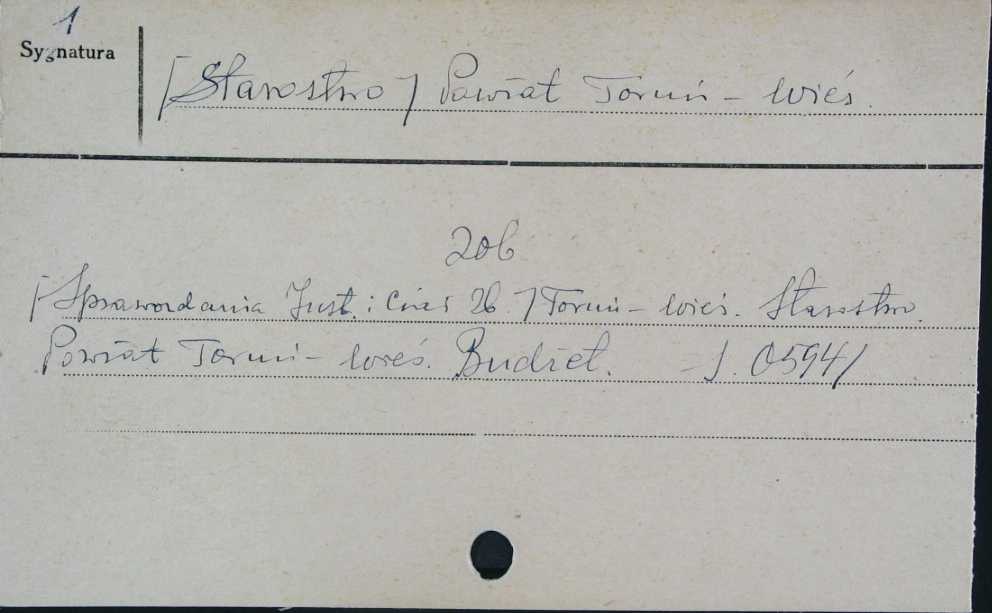 1
Sygnatura
[Starostwo] Powiat Toruń - wieś.
206
[Sprawozdania Inst. i 26.] Toruń - wieś. Starostwo
Powiat Toruń - wieś. Budżet. 05941